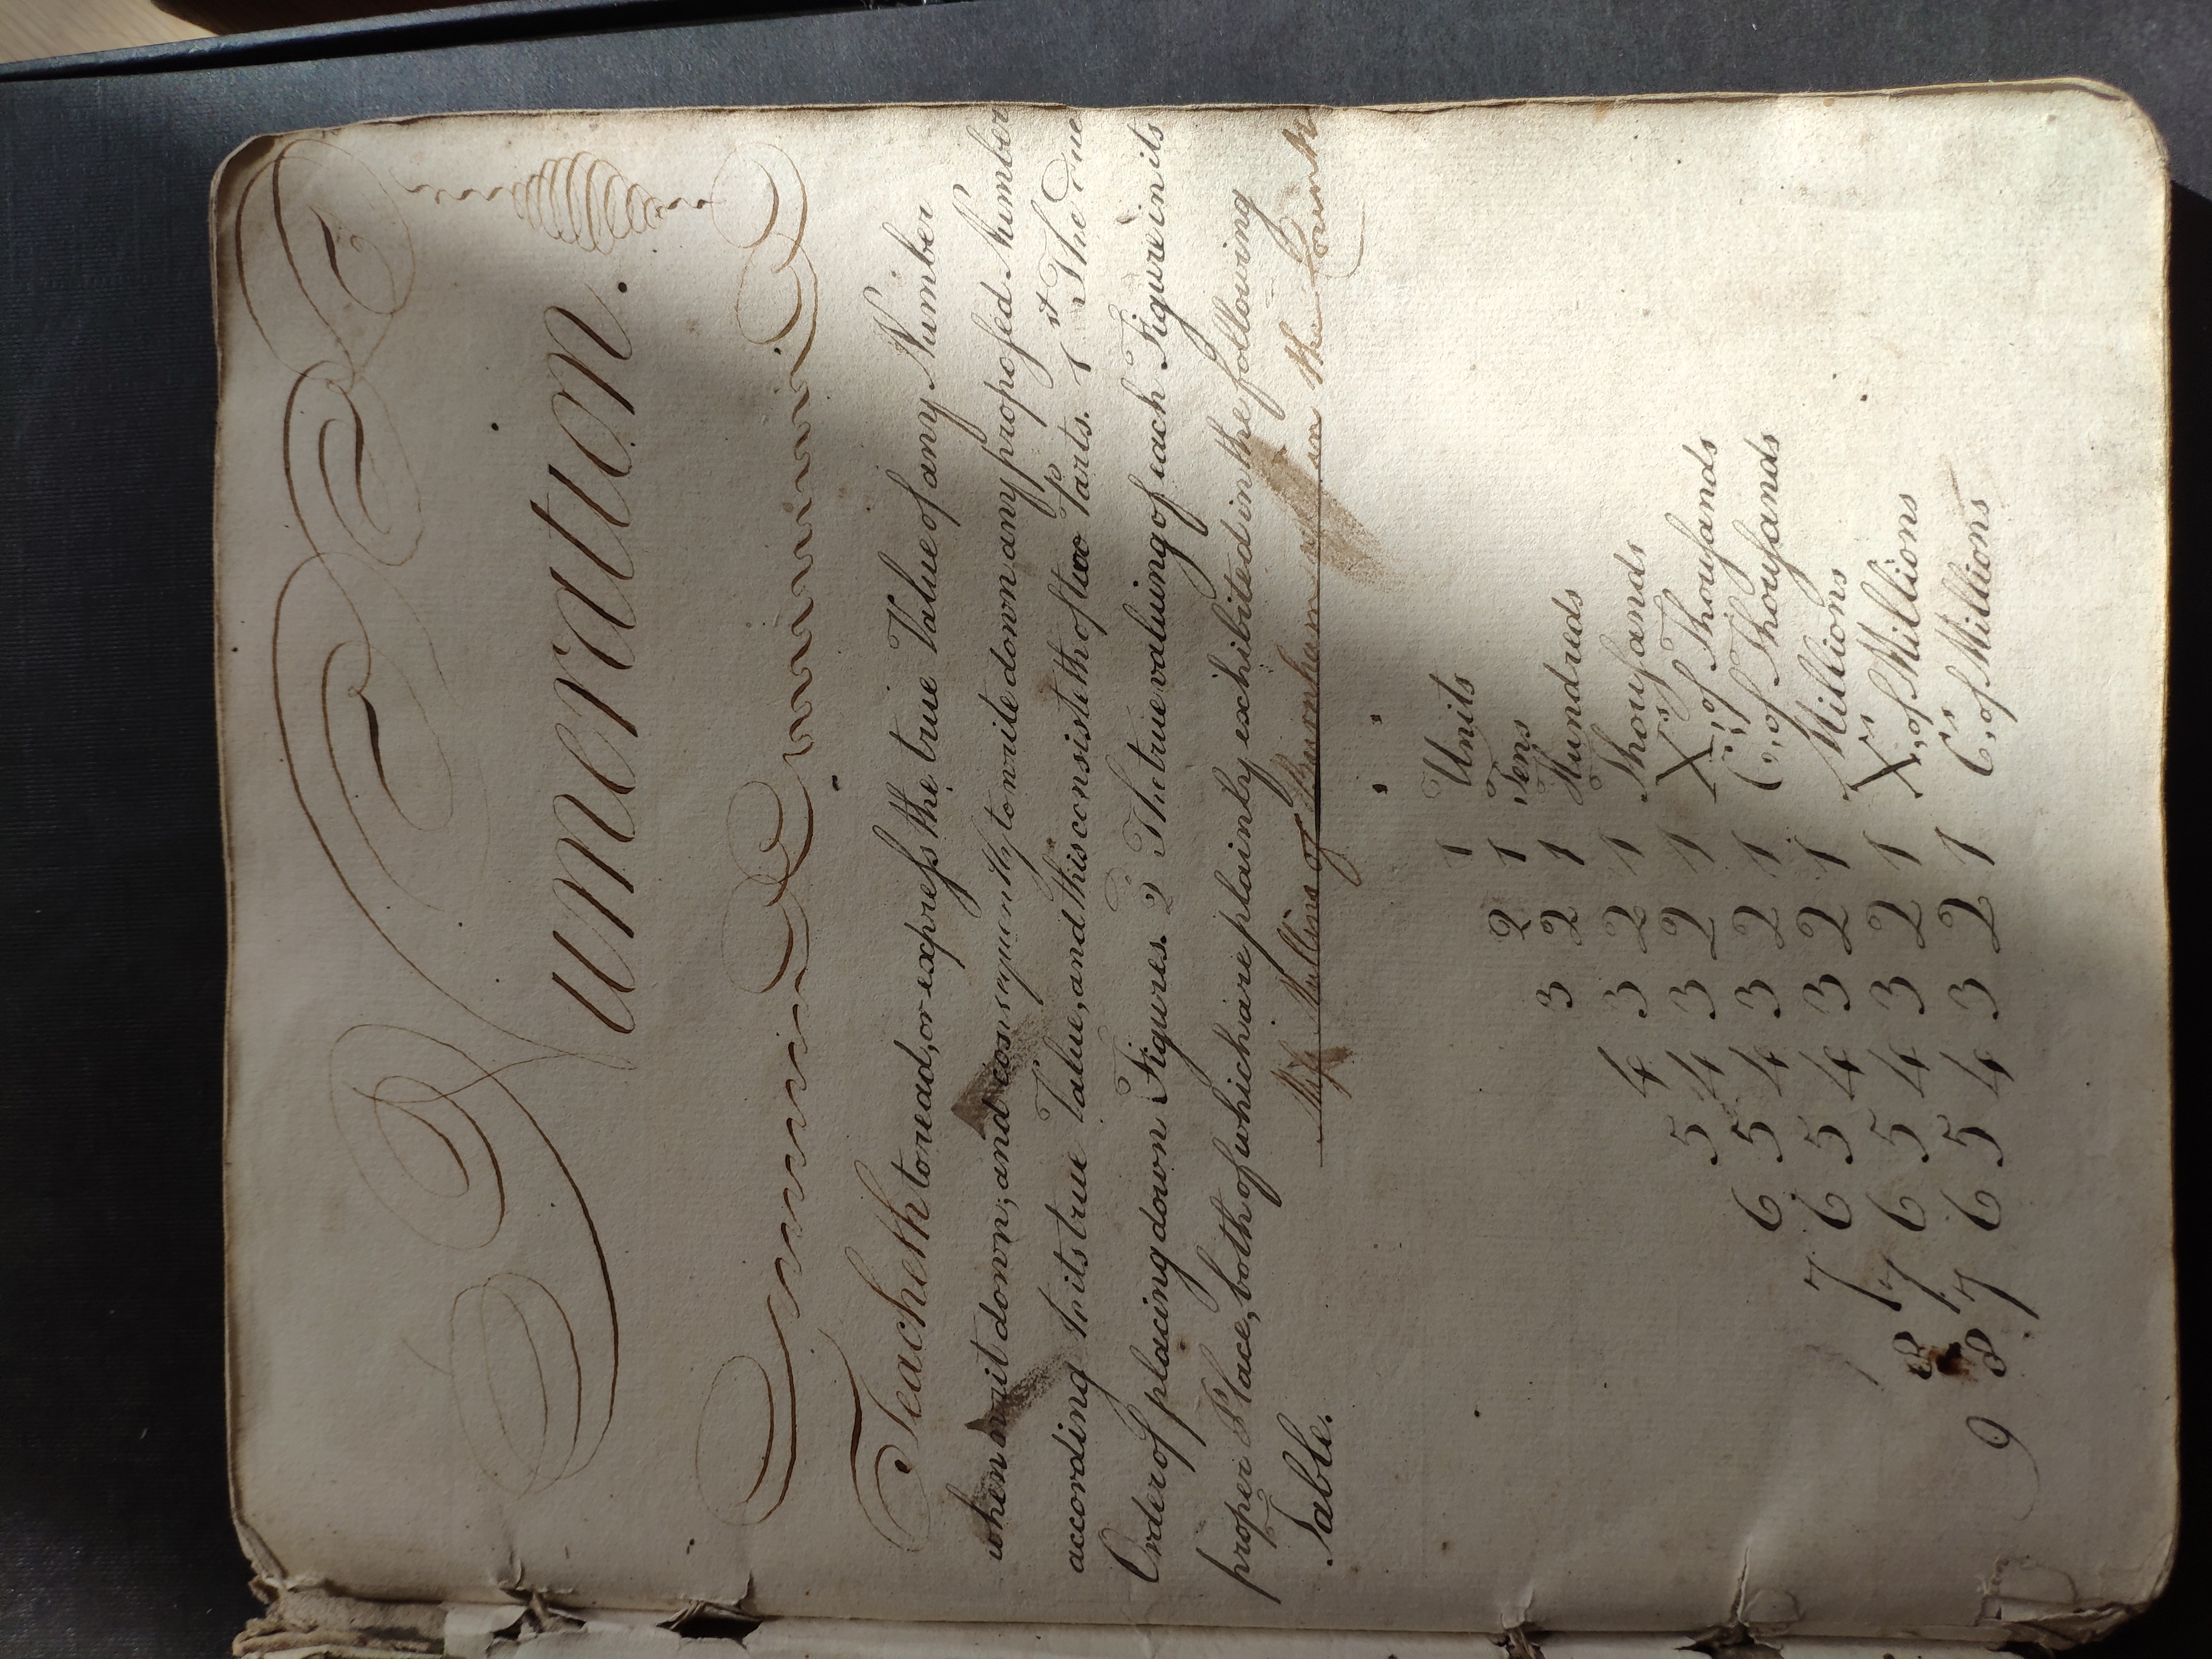 Numeration.
Teacheth to read, or expreſs the true Value of any Number
when writ down; and consequently to write down any propoſed Number
according to its true Value, and this consisteth of two Parts. 1st The Due
Order of placing down Figures. 2 The true valuing of each Figure in its
proper Place, both of which are plainly exchibited in the following
Table.
Miſs Mullins of in the County
1 Units
2 1 Tens
3 2 1 Hundreds
4 3 2 1 Thouſands
5 4 3 2 1 X,s of Thouſands
6 5 4 3 2 1 C,s of Thouſands
7 6 5 4 3 2 1 Millions
8 7 6 5 4 3 2 1 X,s of Millions
9 8 7 6 5 4 3 2 1 C,s of Millions